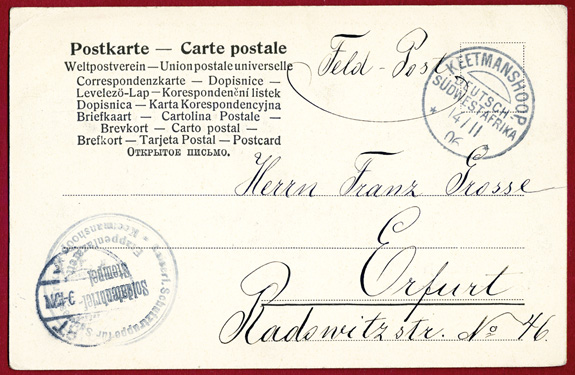 Postkarte — Carte postale
Weltpostverein — Union postale universelle
Correspondenzkarte — Dopisnice —
Levelező-Lap — Korespondenční listek
Dopisnica — Karta Korespondencyjna
Briefkaart — Cartolina Postale —
Brevkort — Carto postal —
Brefkort — Tarjeta Postal — Postcard
Открытое письмо.
Feld-Post
KEETMANSHOOP
DEUTSCH-
SÜDWESTAFRIKA
14/11
06
Herrn Franz Grosse
Erfurt
Radswitzstr. No 46.
Kaiserl. Schutztruppe für
Soldatenbrief
Stempel